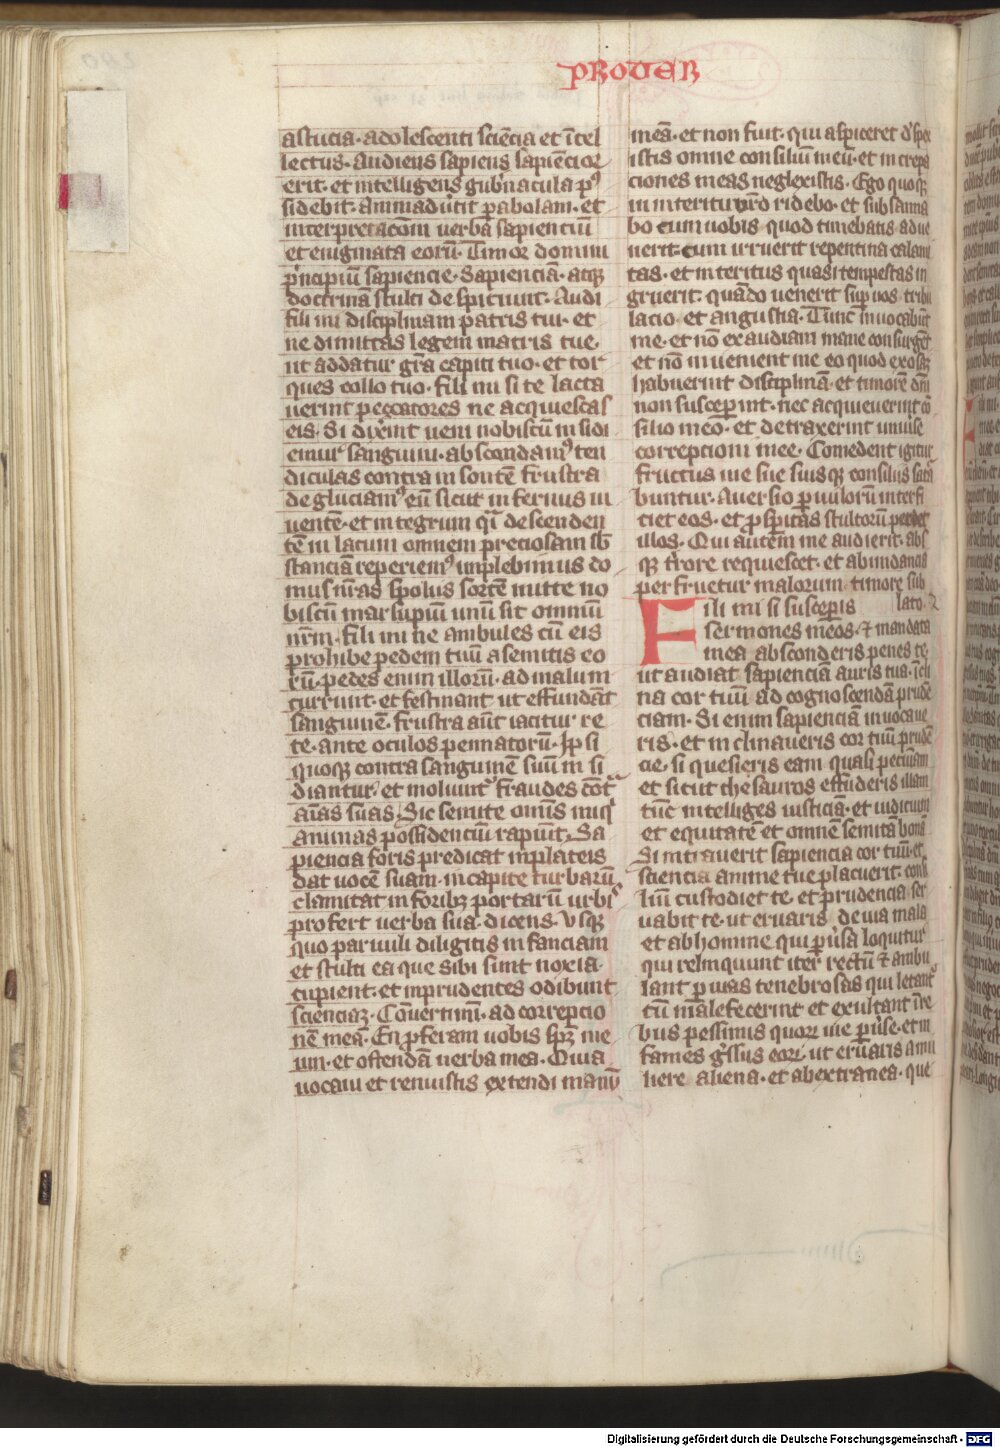 PROVER
astucia· adolescenti sciēcia et ītel
lectus· Audiens sapiens sapiēcior
erit· et intelligens gub̄nacula pꝰ
sidebit· Animadūtit ꝑabolam· et
interpretacōm uerba sapienciū
et enigmata eorū· Timor domini
p̄ncipiū sapiencie· Sapienciā· atqꝫ
doctrinā stulti despiciunt· Audi
fili mi disciplinam patris tui· et
ne dimittas legem matris tue·
ut addatur gr̄a capiti tuo· et tor
ques collo tuo· fili mi si te lacta
uerint peccatores ne acquiescas
eis· Si dixīnt ueni nobiscū in sidi
emur sanguini· abscondamꝰ ten
diculas contra in sontē frustra
degluciamꝰ eū sicut infernus ui
uentē· et integrum q̄i descenden
tē in lacum omnem preciosam sb̄
stanciā reperiemꝰ implebimus do
mus nr̄as spolijs sortē mitte no
biscū marsupiū unū sit omniū
nr̄m· fili mi ne ambules cū eis
prohibe pedem tuū a semitis eo
rū· pedes enim illorū· ad malum
currunt· et festinant ut effundāt
sanguinē· frustra aūt iacitur re
te· ante oculos pennatorū· Ip̄i
quoqꝫ contra sanguinē suū in si
diantur· et moliunt᷑ fraudes cōt᷑
aīas suas· Sic semite om̄is iniq̇
animas possidenciū rapiūt· Sa
piencia foris predicat in plateis
dat uocē suam· in capite turbarū
clamitat in foribꝫ portarū urbiꝰ
profert uerba sua· dicens· Vsqꝫ
quo paruuli diligitis infanciam
et stulti ea que sibi sunt noxia·
cupient· et inprudentes odibunt
scienciaꝫ· Cōuertimī· ad correpcio
nē meā· En ꝓferam uobis spꝫ me
um· et ostendā uerba mea· Quia
uocaui et renuistis extendi manū
meā· et non fuit· qui aspiceret d'spex
istis omne consilium meū· et increpa
ciones meas neglexistis· Ego quoqꝫ
in interitu vr̄o ridebo· et subsanna
bo cum uobis quod timebatis adue
nerit· cum irruerit repentina calami
tas· et interitus quasi tempestas in
gruerit· quādo uenerit suꝑ uos tribu
lacio· et angustia· Tunc inuocabūt
me· et nō exaudiam mane consurgēt
et nō inuenient me eo quod exosā
habuerint disciplinā· et timorē dn̄i
non susceꝑint· nec acquieuerint cō
silio meo· et detraxerint uniūse
correpcioni mee· Comedent igitur
fructus uie sue suisqꝫ consilijs satā
buntur· Auersio ꝑuulorū interfi
ciet eos· et ꝓsꝑitas stultorū perdet
illos· Qui autem me audierit· abs
qꝫ t̄rore requiescet· et abundancia
perfruetur malorum· timore sub
lato·
Fili mi si susceꝑis
sermones meos· ⁊ mandata
mea absconderis penes te
ut audiat sapienciā auris tua· īcli
na cor tuū ad cognoscendā prudē
ciam· Si enim sapienciā inuocaue
ris· et inclinaueris cor tuū prudē
cie· si quesieris eam quasi pecūiam
et sicut thesauros effuderis illam
tūc intelliges iusticiā· et iudicium
et equitatē et omnē semitā bonā
Si intrauerit sapiencia cor tuū· et
sciencia anime tue placuerit· consi
liū custodiet te· et prudencia ser
uabit te· ut eruaris de uia mala
et ab homine qui ꝑūsa loquitur
qui relinquunt iter rectū ⁊ ambu
lant ꝑ uias tenebrosas qui letant᷑
cū malefecerint et exultant ī re
bus pessimis quorū uie ꝑūse· et in
fames gᷓssus eorū· ut eruaris a mu
liere aliena· et ab extranea· que
Digitalisierung gefördert durch die Deutsche Forschungsgemeinschaft - DFG